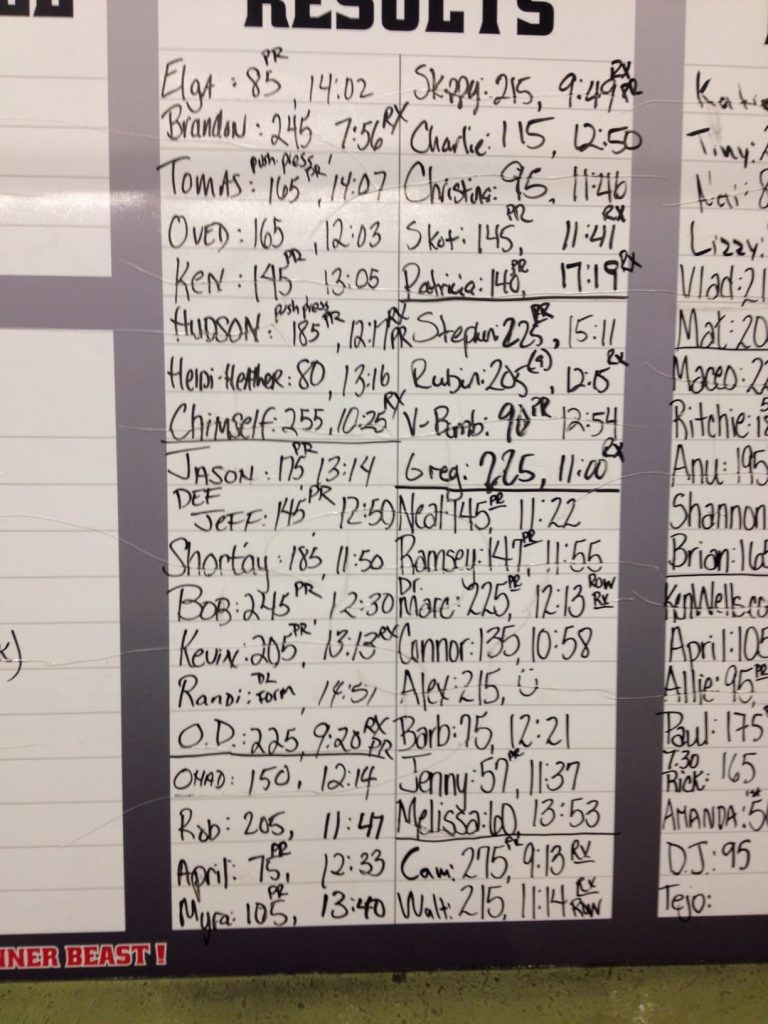 RESULTS
Elga: 85 PR, 14:02
Brandon: 245 7:56 RX
Tomas: push press 165 PR, 14:07
Oved: 165, 12:03
Ken: 145 PR 13:05
Hudson: push press 185 PR, 12:17 RX PR
Heidi-Heather: 80, 13:16
Chimself: 255, 10:25 RX
Jason: 175 PR, 13:14
DEF Jeff: 145 PR, 12:50
Shortay: 185, 11:50
Bob: 245 PR 12:30
Kevin: 205 PR, 13:13 RX
Randi: DL Form, 14:51
O.D.: 225, 9:20 RX PR
Omad: 150, 12:14
Rob: 205, 11:47
April: 75 PR, 12:33
Myra: 105 PR, 13:40
Skippy: 215, 9:49 RX PR
Charlie: 115, 12:50
Christina: 95, 11:46
Skot: 145 PR, 11:41 RX
Patricia: 140 PR, 17:19 RX
Stephen: 225 PR, 15:11
Rubin: 205 (4), 12:15 RX
V-Bomb: 90 PR 12:54
Greg: 225, 11:00 RX
Neal 145 PR, 11:22
Ramsey: 147 PR, 11:55
Dr. Marc: 225 PR, 12:13 Row RX
Connor: 135, 10:58
Alex: 215, Ü
Barb: 75, 12:21
Jenny: 57 PR, 11:37
Melissa: 60, 13:53
Cam: 275 PR, 9:13 RX
Walt: 215, 11:14 RX Row
Tiny:
Lizzy:
Vlad: 21
Mat: 20
Maceo: 22
Ritchie: 1
Anu: 195
Shannon
Brian: 165
KenWells.co
April: 105
Allie: 95 PR
Paul: 175
7:30 Rick: 165
Amanda: 5
D.J.: 95
Tejo:
INNER BEAST!